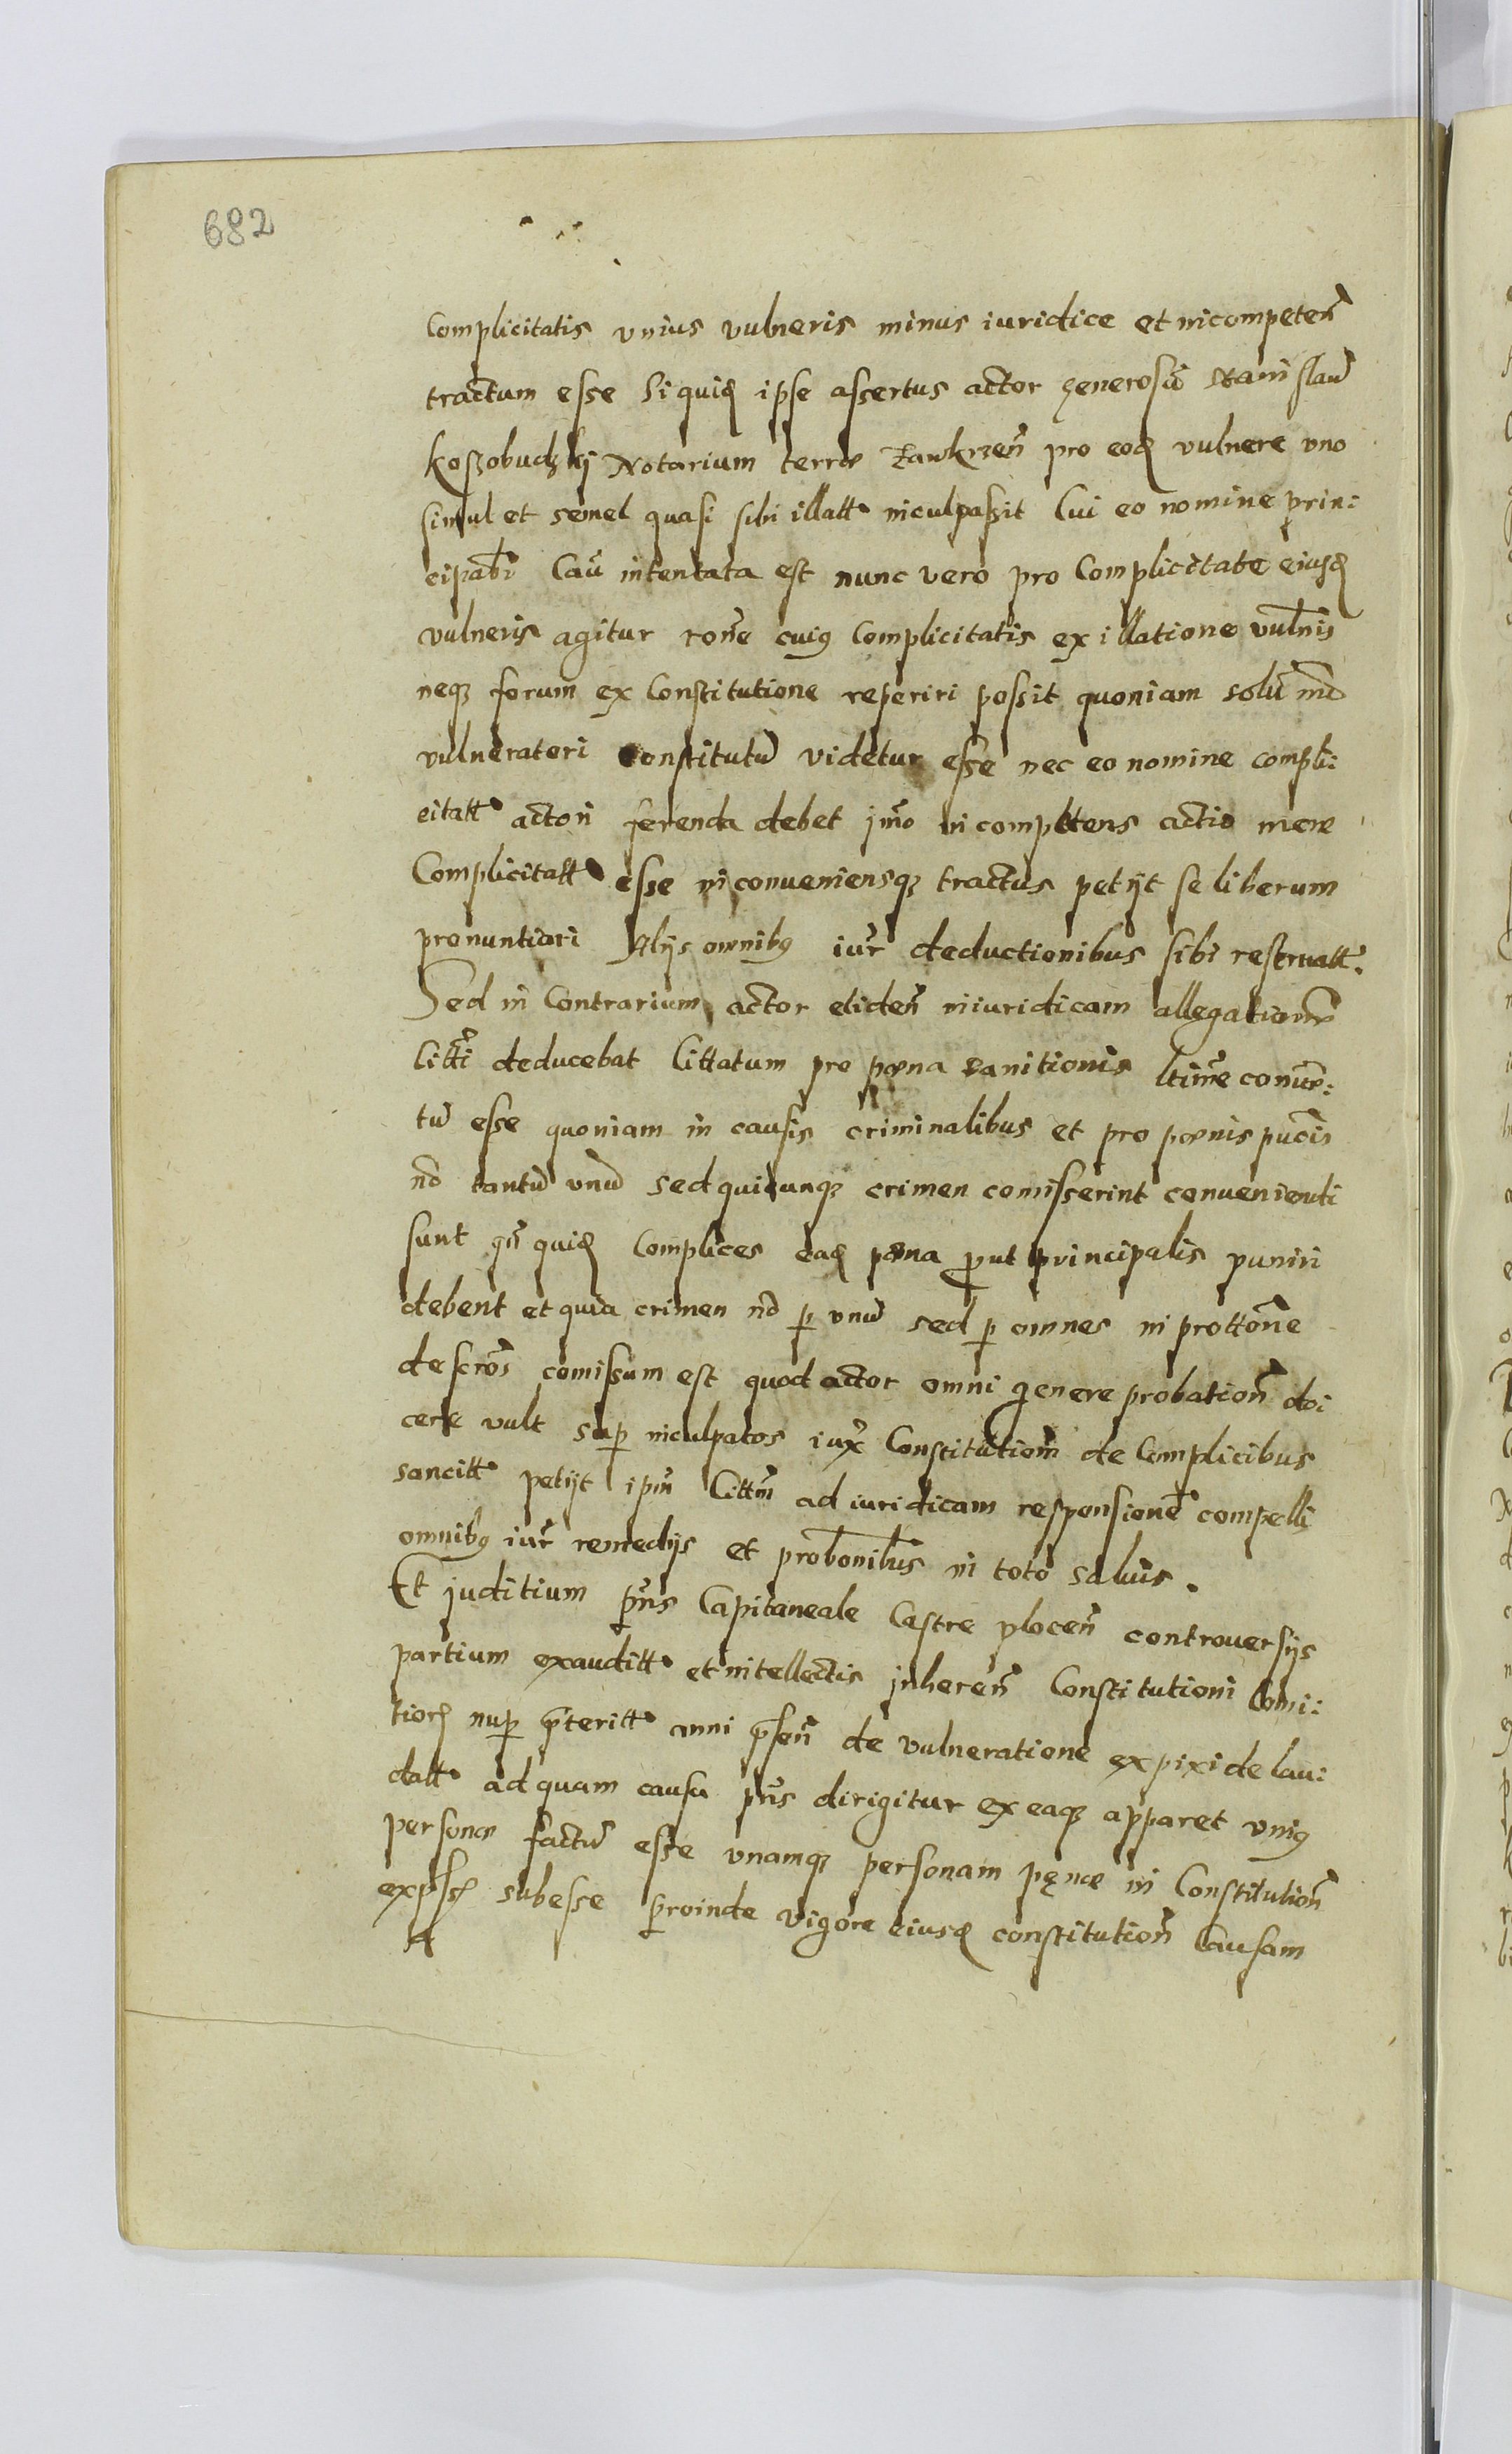 682
Complicitatis vnius vulneris minus iuridice et incompeten̄
tractum esse Siquid̄ ipse assertus actor generosū Stanislaū
Koszobudzkij Notarium terræ Zawkrzen̄ pro eod̄ vulnere vno
simul et semel quasi sibi illatt inculpassit Cui eo nomine prin:
cipalr̄ Cau intentata est nunc vero pro Complicitate eiusd̄
vulneris agitur rone cuiq Complicitatis ex illatione vulnis
neq forum ex Constitutione reperiri possit quoniam solū m̄o
vulneratori Constitutū videtur esse nec eo nomine compli:
citatt actori ferenda debet jm̄o incompetens actio meræ
Complicitatt esse inconueniensq tractus petijt se liberum
pronuntiari Alijs omnibq iur̄ deductionibus sibi reseruatt.
Sed in Contrarium actor eliden̄ iniuridicam allegationē
Citti deducebat Cittatum pro pœna banitionis ltime conuen:
tū esse quoniam in causis criminalibus et pro pœnis pucis
nō tantū vnū sed quicunq crimen comisserint conueniendi
sunt qn̄ quid̄ Complices ead̄ pœna prout principalis puniri
debent et quia crimen nō p vnū sed p omnes in prottōne
descros comissum est quod actor omni genere probation̄ do:
cere vult sup inculpatos iux̄ Constitutiom̄ de Complicibus
sancitt petijt ipm̄ Cittm̄ ad iuridicam responsionē compelli
omnibq iur̄ remedijs et probonibus in toto saluis.
Et juditium pn̄s Capitaneale Castre plocen̄ controuersijs
partium exauditt et intellectis jnheren̄ Constitutioni Comi:
tior̄ nup p̄teritt anni p̄sen̄ de vulneratione ex pixide lau:
datt ad quam causa pn̄s dirigitur ex eaq apparet vniq
personæ factū esse vnamq personam pęnæ in Constitution̄
exp̄ss̄ subesse proinde vigore eiusd̄ constitution̄ Causam